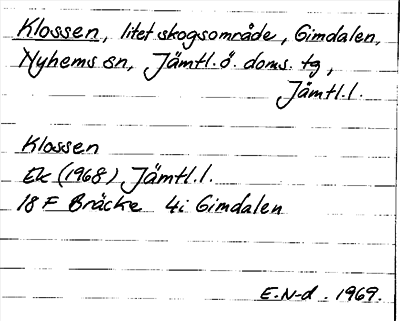 Klossen, litet skogsområde, Gimdalen,
Nyhems sn, Jämtl. ö. doms. tg,
Jämtl. l.
Klossen
Ek (1968) Jämtl. l.
18 F Bräcke 4i Gimdalen
E. N-d. 1969.